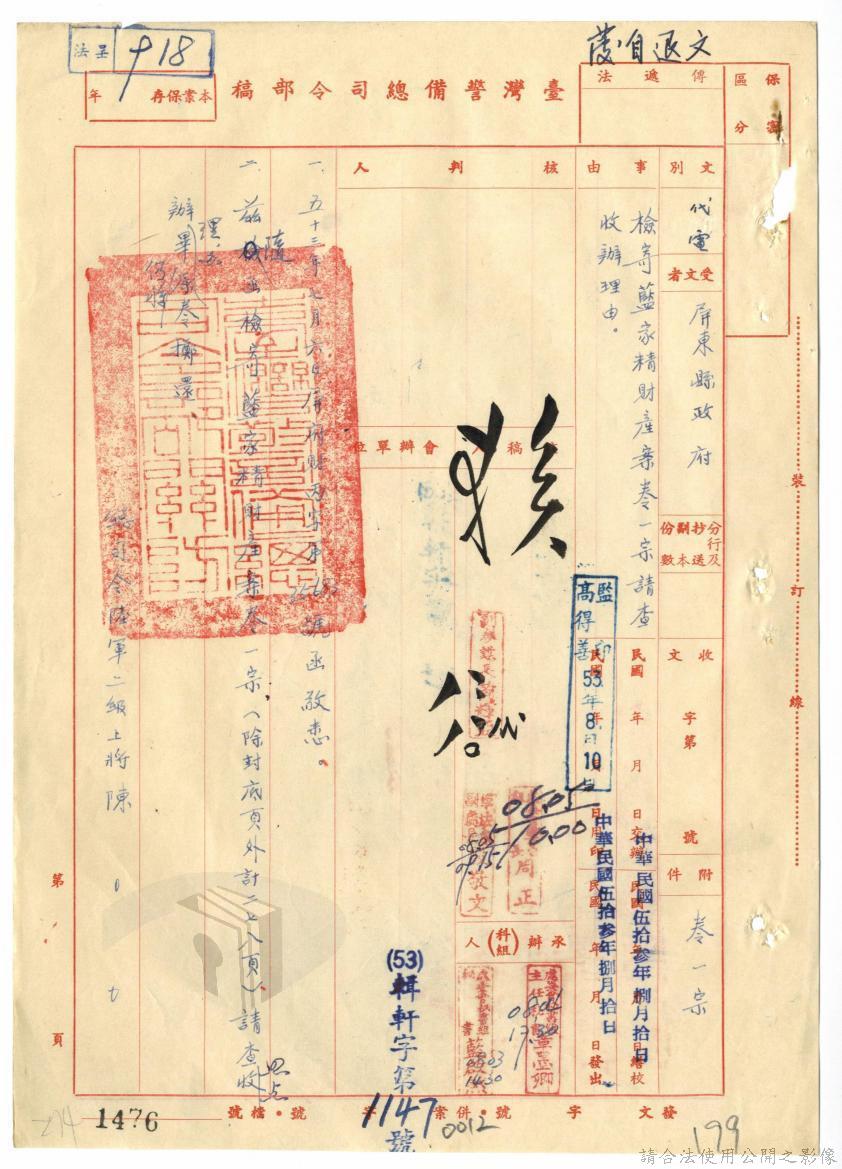 發自退文
呈法
918
臺灣警備總司令部稿
本案保存
年
傳遞法
保密
區分
文別
代電
受文者
屏東縣政府
分行及
抄送
副本
份數
收文
字第
號
附件
卷一宗
事由
檢寄藍家精財產案卷一宗請查
收辦理由。
民國
年
月
日交辦
中華民國伍拾參年捌月拾日
日繕校
監印
高得善
53年8月10日
中華民國伍拾參年捌月拾日
日發出
核判人
擬稿人
會辦單位
08.05
10.00
0805
0915
周正
承辦(科組)人
0804
17.30
08.03
14.30
(53)輯軒字第1147號
一、五十三年七月六日屏府財丙字第
號函敬悉。
二、茲隨函檢寄藍家精財產案卷一宗(除封底頁外計二七八頁)請查收
辦理並
辦畢後將原卷擲還
總司令陸軍二級上將陳
裝
訂
線
第
頁
發文
字
號
併案
字
號
檔號
0012
1476
274
199
請合法使用公開之影像